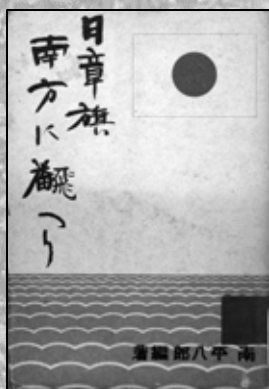 日章旗
南方に飜へり
南平八郎編著